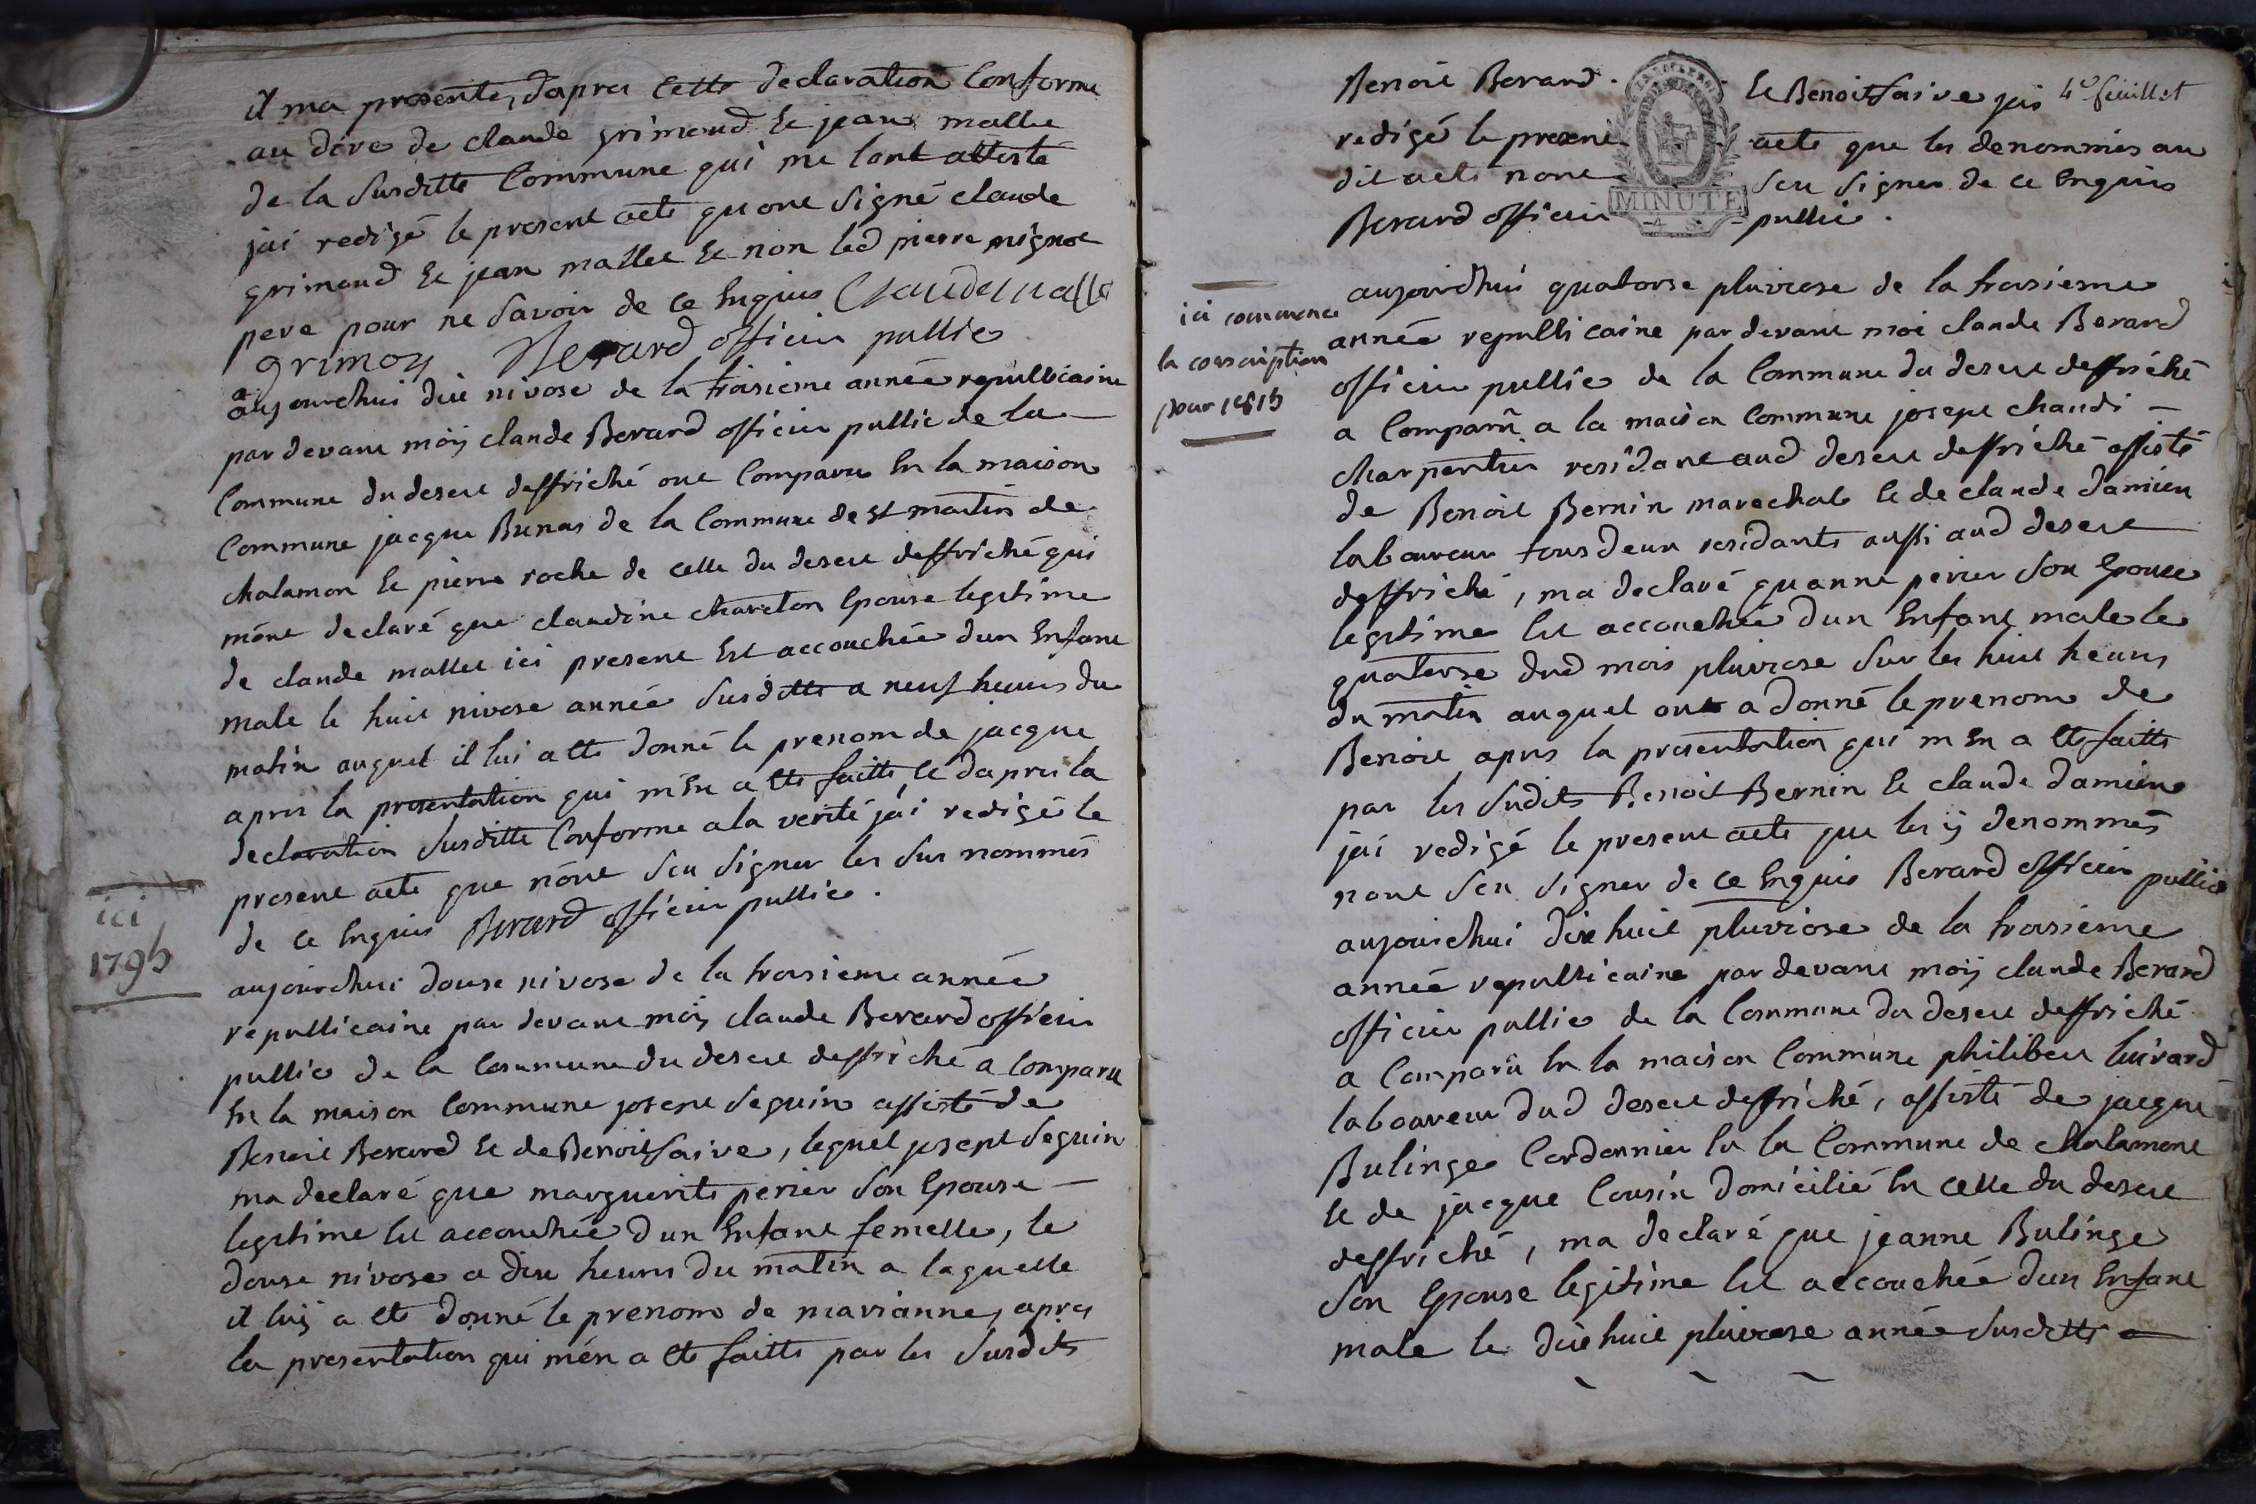 il ma presente, dapres cette declaration conforme
au dire de claude grimaud et jean mallet
de la susditte commune qui me lont attesté
jai redigé le present acte quont signé claude
grimaud et jean mallet et non led pierre mignot
pere pour ne savoir de ce enquis Claude Malle
grimoz Berard officier pullic
aujourdhui dix nivose de la troisieme année republicaine
par devant moij claude Berard officier pullic de la
commune du desert deffriché ont comparu en la maison
commune jacque Bunas de la commune de st martin de
chalamon et pierre roche de celle du desert deffriché qui
mont declaré que claudine chareton epouse legitime
de claude mallet ici present est accouchée dun enfant
male le huit nivose année susditte a neuf heures du
matin auquel il lui a ete donné le prenom de jacque
apres la presentation qui m'en a ete faitte et dapres la
declaration susditte conforme a la verité j'ai redigé le
present acte que nont seu signer les sus nommés
de ce enquis Berard officier pullic.
ici
1795
aujourdhui douse nivose de la troisieme année
republicaine par devant moij claude Berard officier
pullic de la commune du desert deffriché a comparu
en la maison commune josept seguin assisté de
Benoit Berard et de Benoit faive, lequel josept seguin
ma declaré que marguerite perier son epouse
legitime est accouchée dun enfant femelle, le
douse nivose a dix heures du matin a laquelle
il luij a ete donné le prenom de marianne, apres
la presentation qui m'en a ete faitte par les susdits
4e feuillet
Benoit Berard. et Benoit faive jai
redigé le present acte que les denommés au
dit acte nont seu signer de ce enquis
Berard officier pullic.
MINUTE
ici commence
la conscription
pour 1815
aujourdhui quatorse pluviose de la troisieme
année republicaine par devant moi claude Berard
officier pullic de la commune du desert deffriché
a comparu a la maison commune josept chaudi
charpentier residant aud desert deffriché assisté
de Benoit Bernin marechal et de claude damien
laboureur tous deux residants aussi aud desert
deffriché, ma declaré quanne perier son epouse
legitime est accouchée dun enfant male le
quatorse dud mois pluviose sur les huit heures
du matin auquel on a donné le prenom de
Benoit apres la presentation qui m'en a ete faitte
par les sudits Benoit Bernin et claude damien
jai redigé le present acte que les ij denommés
nont seu signer de ce enquis Berard officier pullic
aujourdhui dix huit pluviose de la troisieme
année republicaine par devant moij claude Berard
officier pullic de la commune du desert deffriché
a comparu en la maison commune philibert luivard
laboureur dud desert deffriché, assisté de jacque
Bulinge cordonnier en la commune de chalamont
et de jacque cousin domicilié en celle du desert
deffriché, ma declaré que jeanne Bulinge
son epouse legitime est accouchée dun enfant
male le dix huit pluviose année susditte a